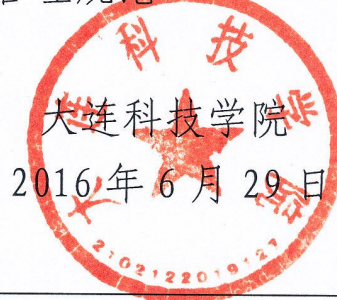 大连科技学院
2016年6月29日
大连科技学院
2102122019127